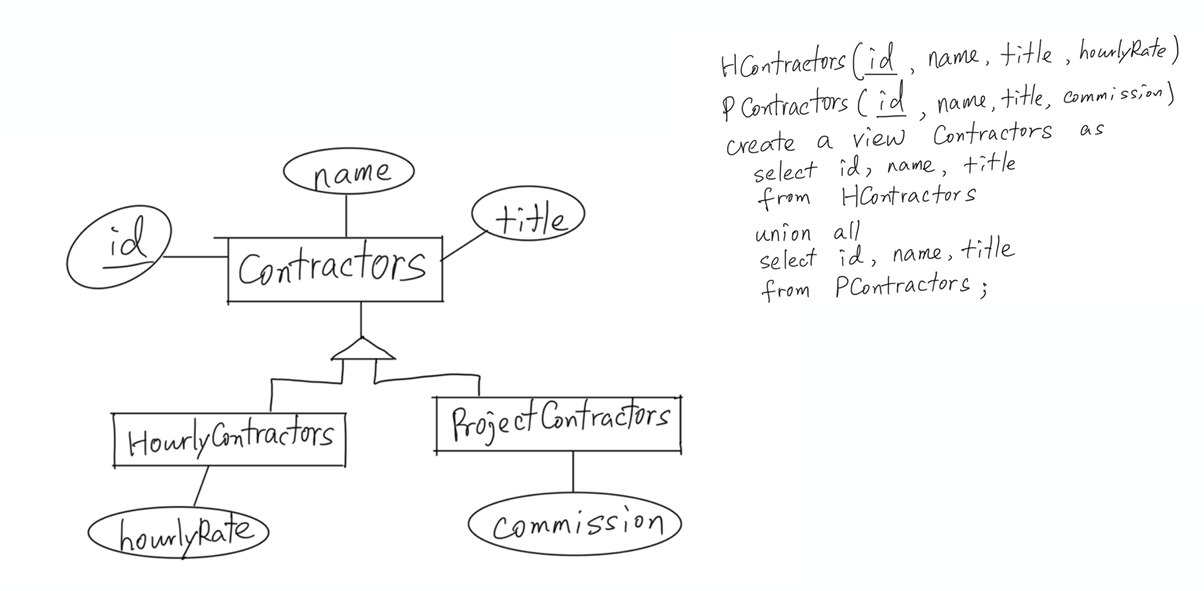 name
title
id
Contractors
HourlyContractors
ProjectContractors
hourlyRate
commission
HContractors(id, name, title, hourlyRate)
PContractors(id, name, title, commission)
create a view Contractors as
select id, name, title
from HContractors
union all
select id, name, title
from PContractors;